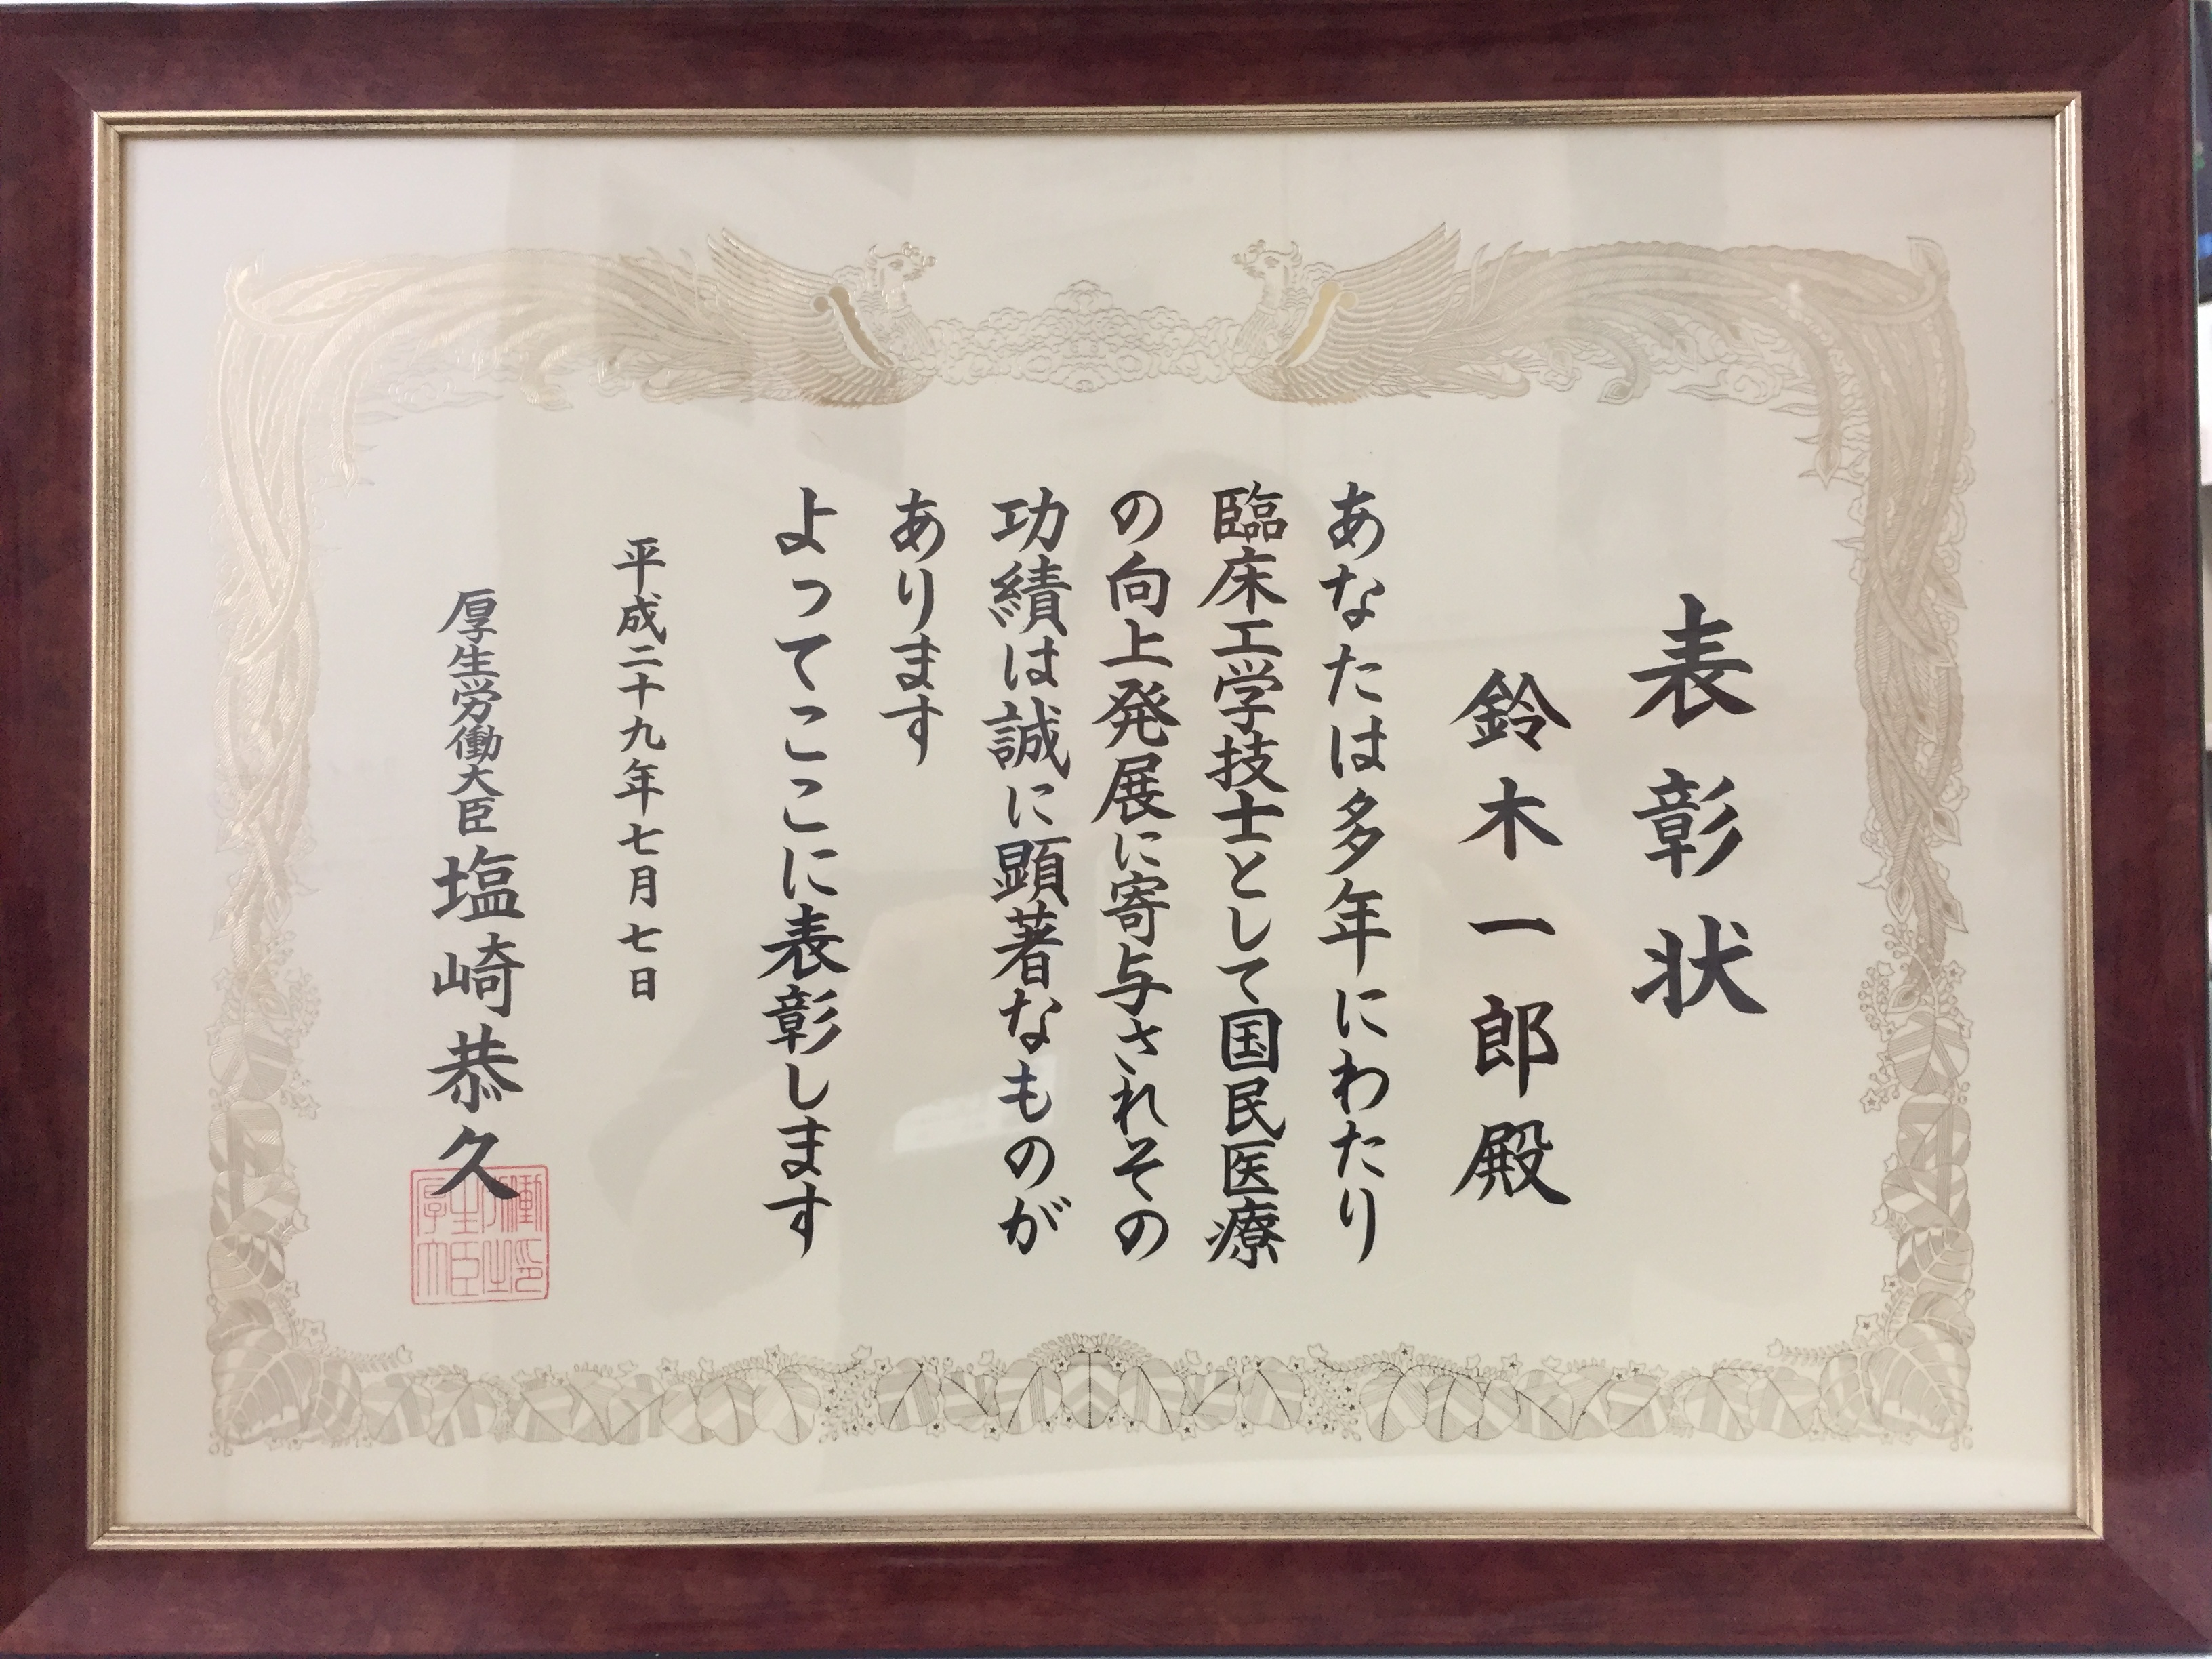 表彰状
鈴木一郎殿
あなたは多年にわたり
臨床工学技士として国民医療
の向上発展に寄与されその
功績は誠に顕著なものが
あります
よってここに表彰します
平成二十九年七月七日
厚生労働大臣塩崎恭久